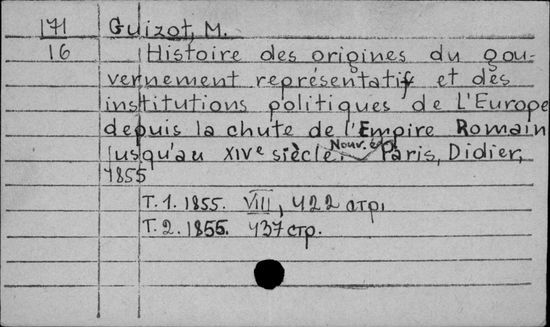 171 Guizot, M.
16 Histoire des origines du gou-
vernement représentatif et des
institutions politiques de l'Europe
depuis la chute de l'Empire Romain
jusqu'au XIVe siècle. Nouv. éd. Paris, Didier,
1855
T. 1. 1855. VIII, 422 стр.
T. 2. 1855. 437 стр.